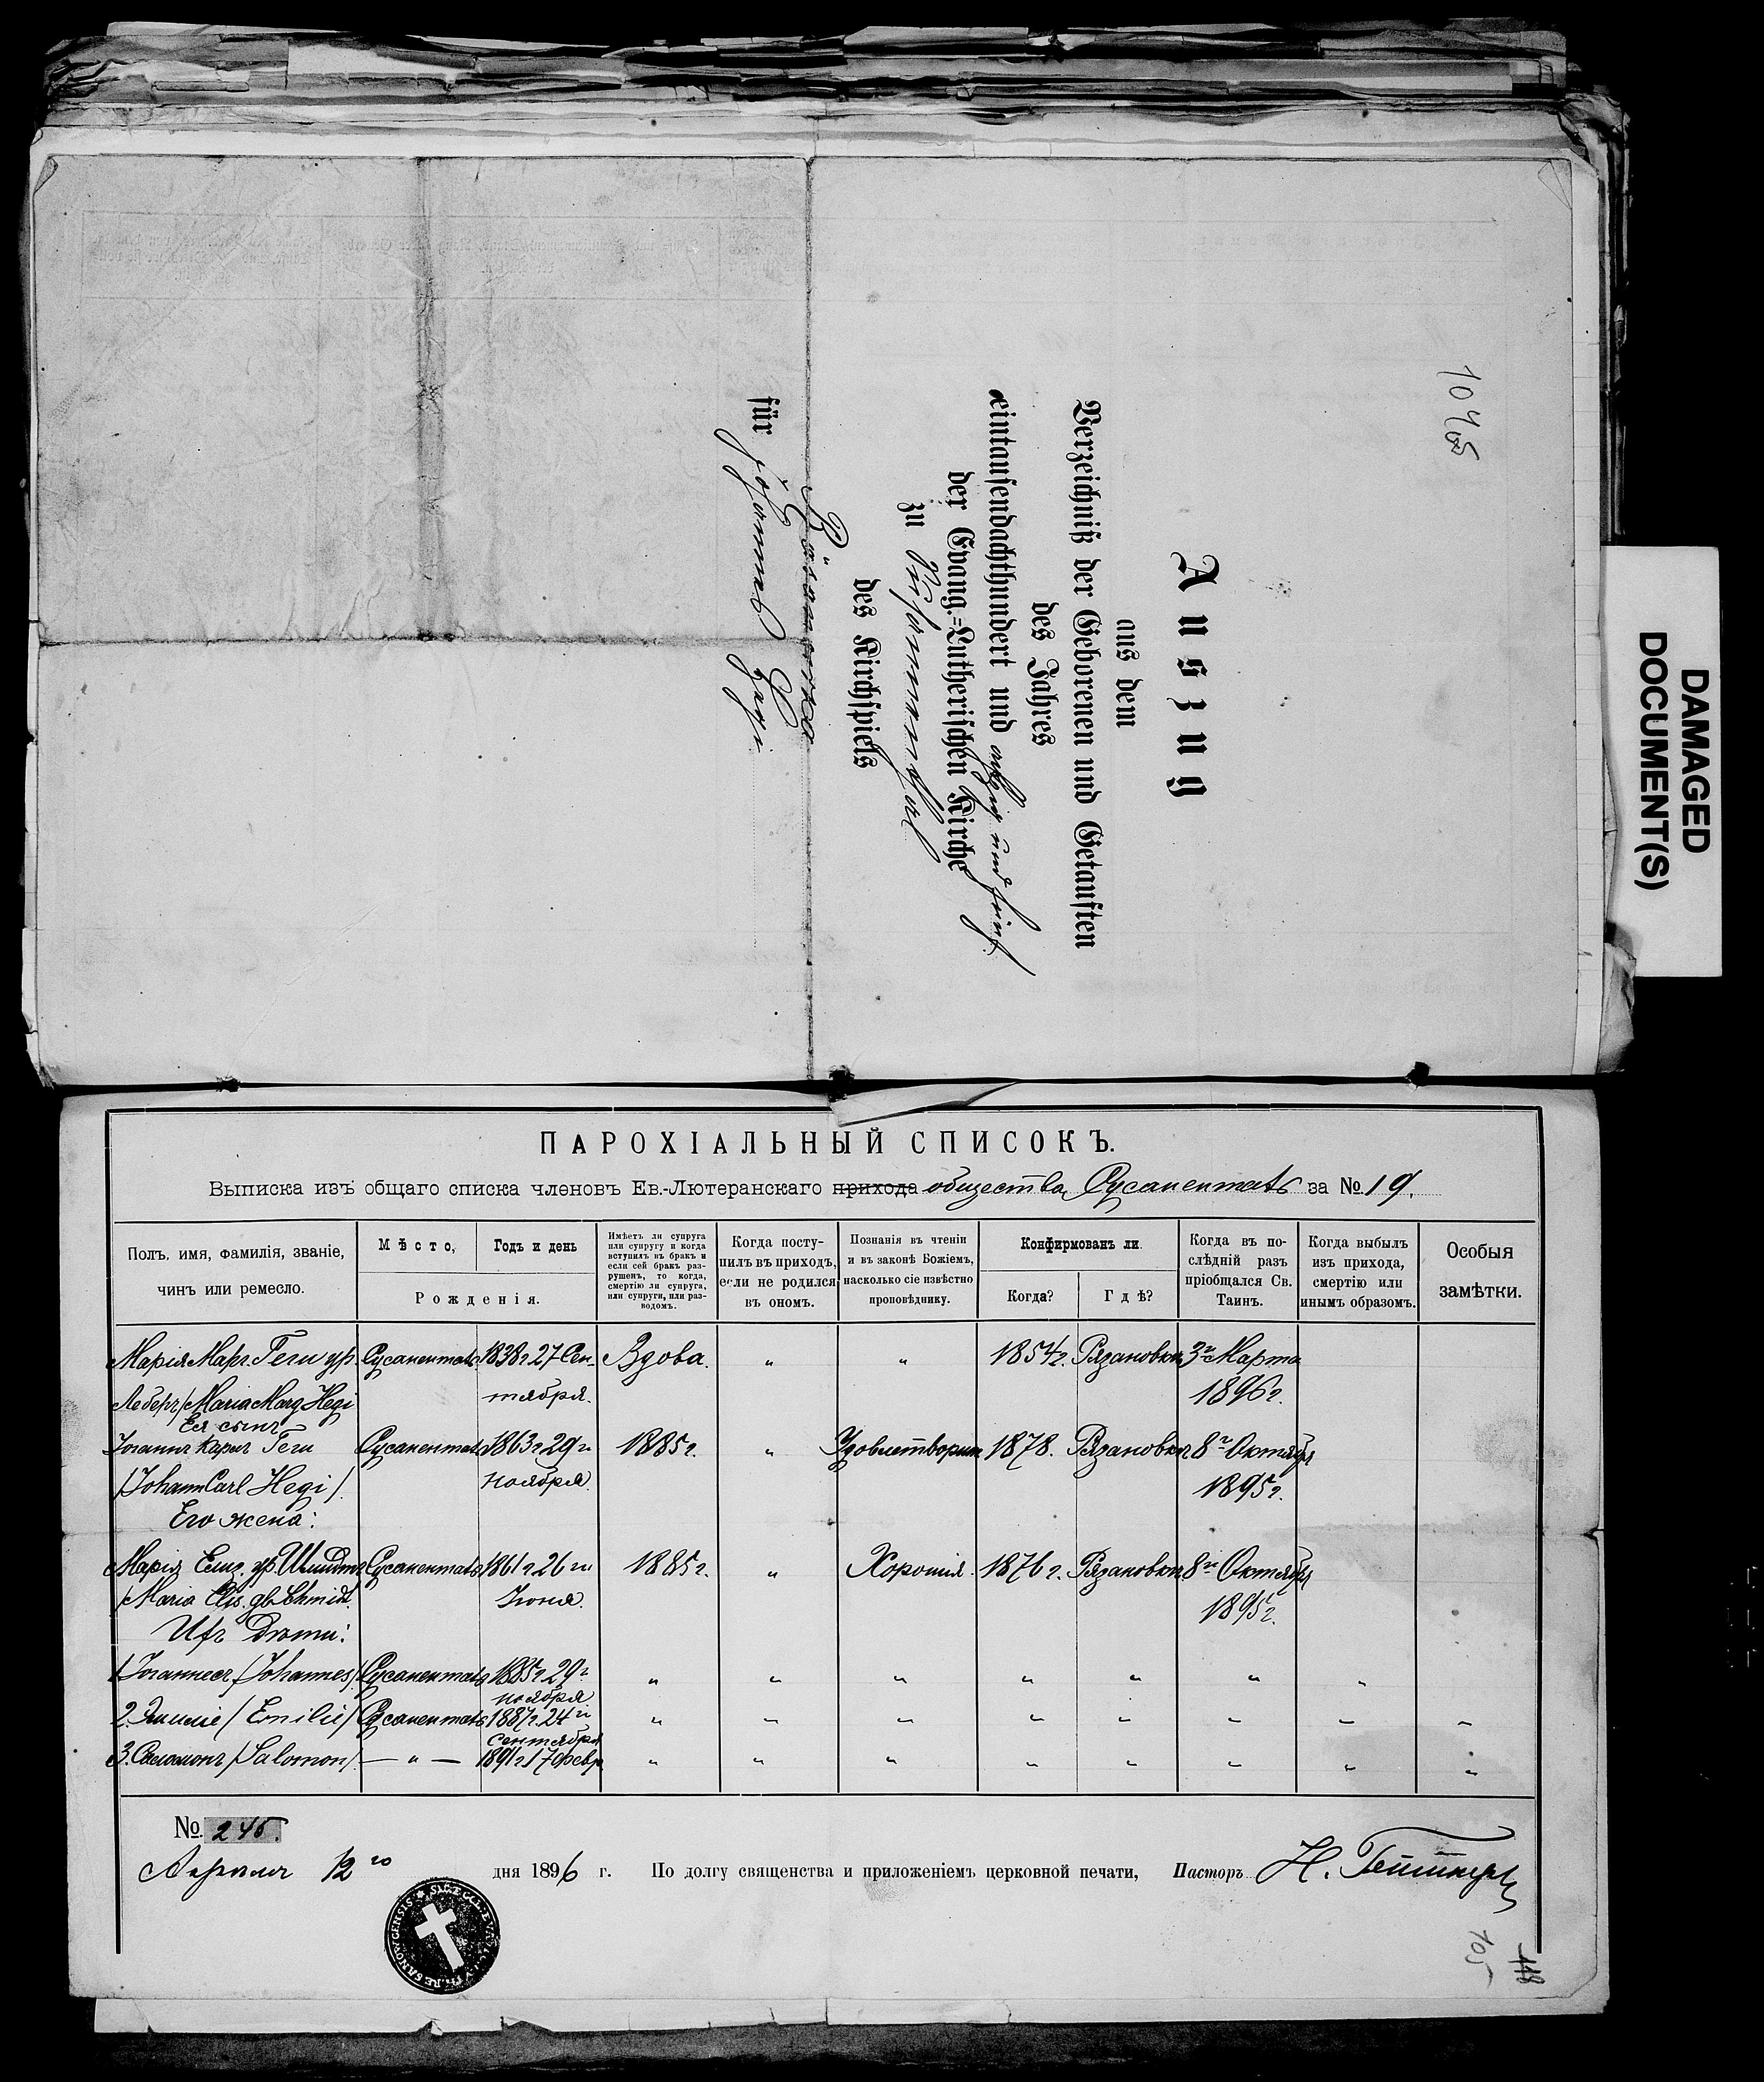 1045
DAMAGED
DOCUMENT(S)
Auszug
aus dem
Verzeichniß der Geborenen und Getauften
des Jahres
eintausendachthundert und achtzig und fünf
der Evang.=Lutherischen Kirche
zu
des Kirchspiels
Räsanowka
für Johannes Hegi
ПАРОХІАЛЬНЫЙ СПИСОКЪ.
Выписка изъ общаго списка членовъ Ев.-Лютеранскаго прихода общества Сусаненталь за №19.
Полъ, имя, фамилія, званіе, чинъ или ремесло.
Мѣсто,
Годъ и день
Рожденія.
Имѣетъ ли супруга или супругу и когда вступилъ въ бракъ и если сей бракъ разрушенъ, то когда, смертію ли супруга, или супруги, или разводомъ.
Когда поступилъ въ приходъ, если не родился въ ономъ.
Познанія въ чтеніи и въ законѣ Божіемъ, насколько сіе извѣстно проповѣднику.
Конфирмованъ ли.
Когда?
Гдѣ?
Когда въ послѣдній разъ пріобщался Св. Таинъ.
Когда выбылъ изъ прихода, смертію или инымъ образомъ.
Особыя замѣтки.
Марія Марг. Геги ур. Сусаненталь 1838г 27 Сен- Вдова. " " 1854г. Рязановкѣ 3го Марта
/Maria Marg Hegi тября. 1896г.
Ея сынъ
Іоганнъ Карлъ Геги Сусаненталь 1863г 29го 1885г. " Удовлетворит 1878. Рязановкѣ 8го Октября
/Johann Carl Hegi/ ноября. 1895г.
Его жена:
Марія Елиз. ур. Шмидтъ Сусаненталь 1861г 26го 1885г. " Хорошія. 1876г. Рязановкѣ 8го Октября
/Maria Elis. gb. Schmidt. Іюня. 1895г.
Ихъ дѣти:
1. Іоганнесъ /Johannes/ Сусаненталь 1885г 29го " " " " " " "
ноября
2. Эмиліе /Emilie/ Сусаненталь 1887г. 24го " " " " " " " "
Сентября
3. Саломонъ /Salomon/ — " — 1891г 17 февр " " " " " " " "
№ 245.
Апрѣля 12го дня 1896 г. По долгу священства и приложеніемъ церковной печати, Пасторъ
105
118